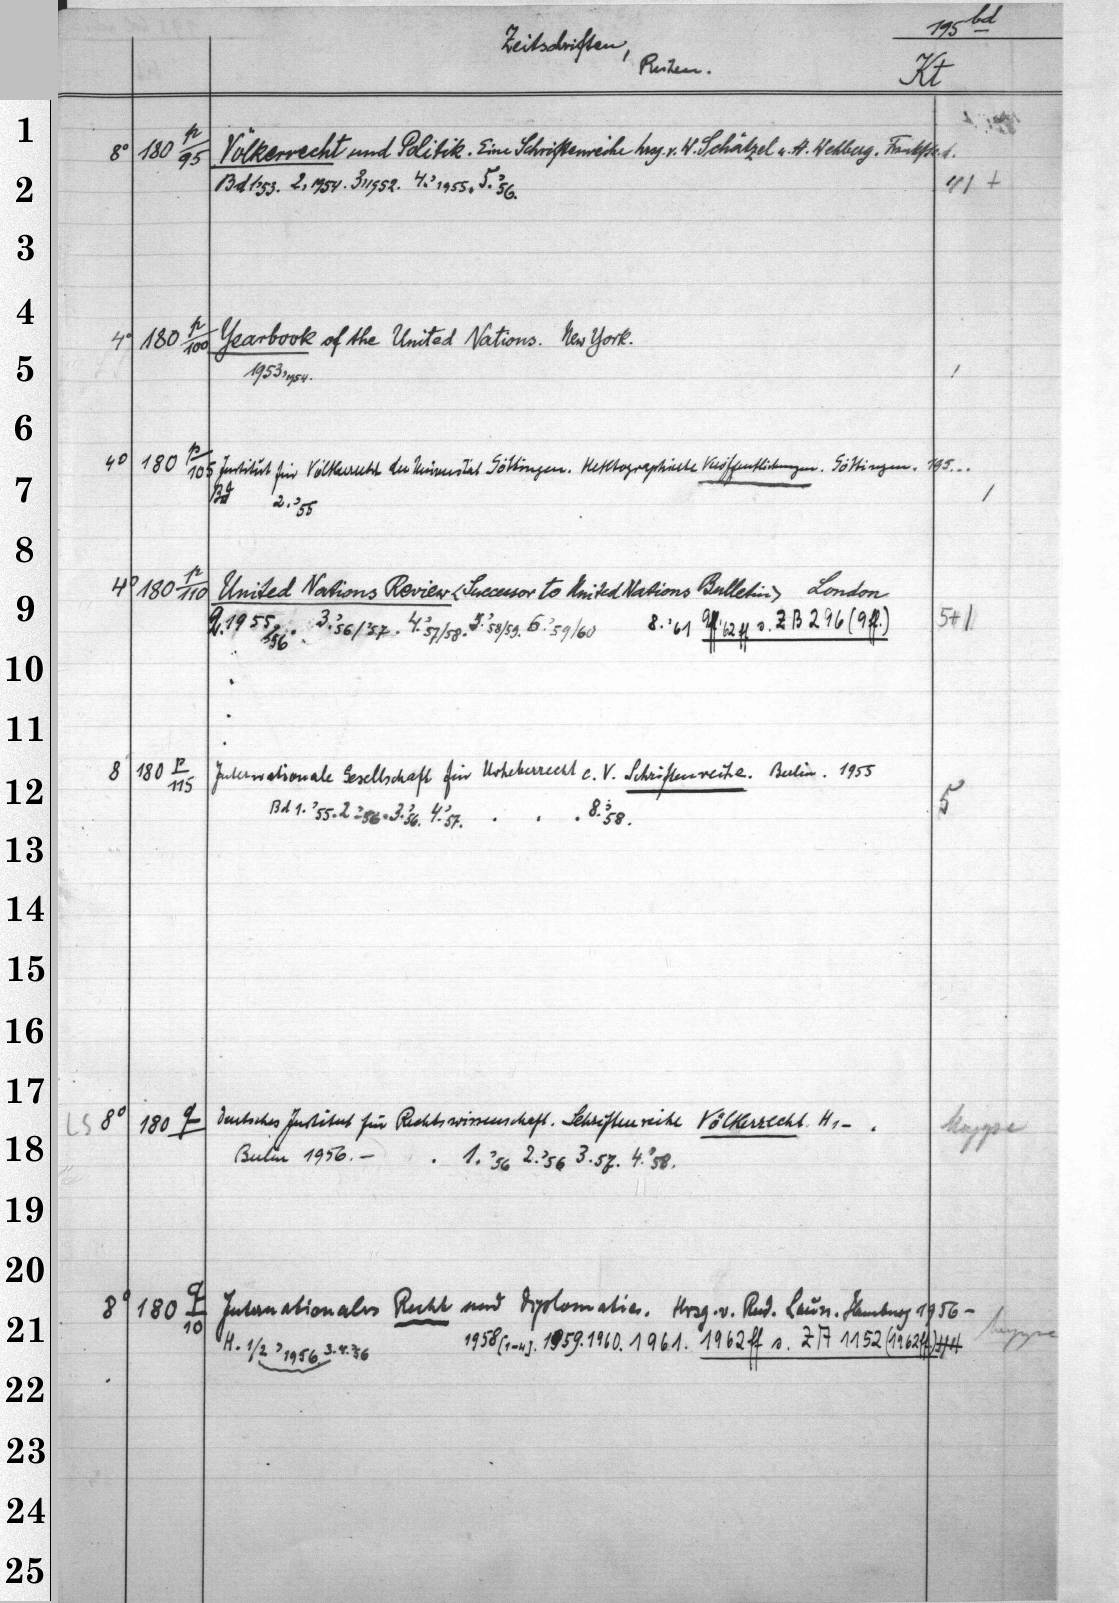 195 bd
Zeitschriften, Reihen.
Kt
1
8° 180 p/95 Völkerrecht und Politik. Eine Schriftenreihe hrsg. v. W. Schätzel u. H. Wehberg.
2
Bd 1,'53. 2,1954. 3,1952. 4.'1955. 5.'56. 41 +
3
4
4° 180 p/100 Yearbook of the United Nations. New York.
5
1953,1954.
6
4° 180 p/105 Institut für Völkerrecht der Universität Göttingen. Hektographierte Veröffentlichungen. Göttingen. 195...
7
Bd 2.'55
8
4° 180 p/110 United Nations Review <Successor to United Nations Bulletin> London
9
2.1955,'56. 3.'56/'57. 4.'57/58. 5.'58/59. 6.'59/60 8.'61 9ff.'62ff s. ZB 296 (9ff.) 5+1
10
11
8 180 p/115 Internationale Gesellschaft für Urheberrecht e. V. Schriftenreihe. Berlin. 1955
12
Bd 1.'55. 2.'56. 3.'56. 4.'57. . . . 8.'58. 5
13
14
15
16
17
LS 8° 180 q Deutsches Institut für Rechtswissenschaft. Schriftenreihe Völkerrecht. H 1- . Mappe
18
Berlin 1956.- . 1.'56 2.'56 3.57. 4.'58.
19
20
8° 180 q/10 Internationales Recht und Diplomatie. Hrsg. v. Rud. Laun. Hamburg 1956-
21
H. 1/2,'1956. 3.4.'56 1958[1-4]. 1959. 1960. 1961. 1962ff s. ZA 1152 (1962ff) Mappe
22
23
24
25